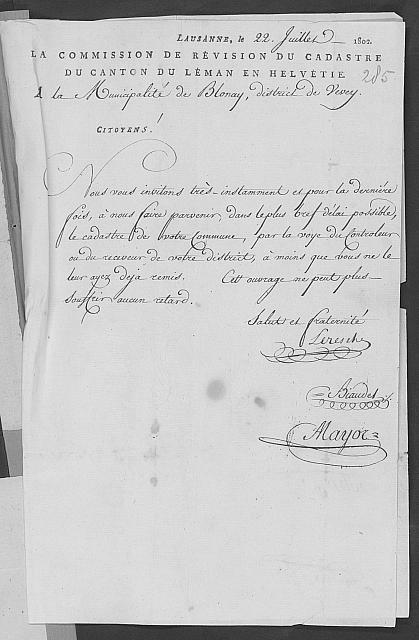 LAUSANNE, le 22. Juillet 1802.
LA COMMISSION DE RÉVISION DU CADASTRE
DU CANTON DU LÉMAN EN HELVÉTIE
285
A la Municipalité de Blonay, district de Vevey.
CITOYENS!
Nous vous invitons très-instamment et pour la dernière
fois, à nous faire parvenir, dans le plus bref délai possible,
le cadastre de votre Commune, par la voye du Controleur
ou du receveur de votre district, à moins que vous ne le
leur ayez déja remis. Cet ouvrage ne peut plus
souffrir aucun retard.
Salut et fraternité
Leresche
Biaudet
Mayor